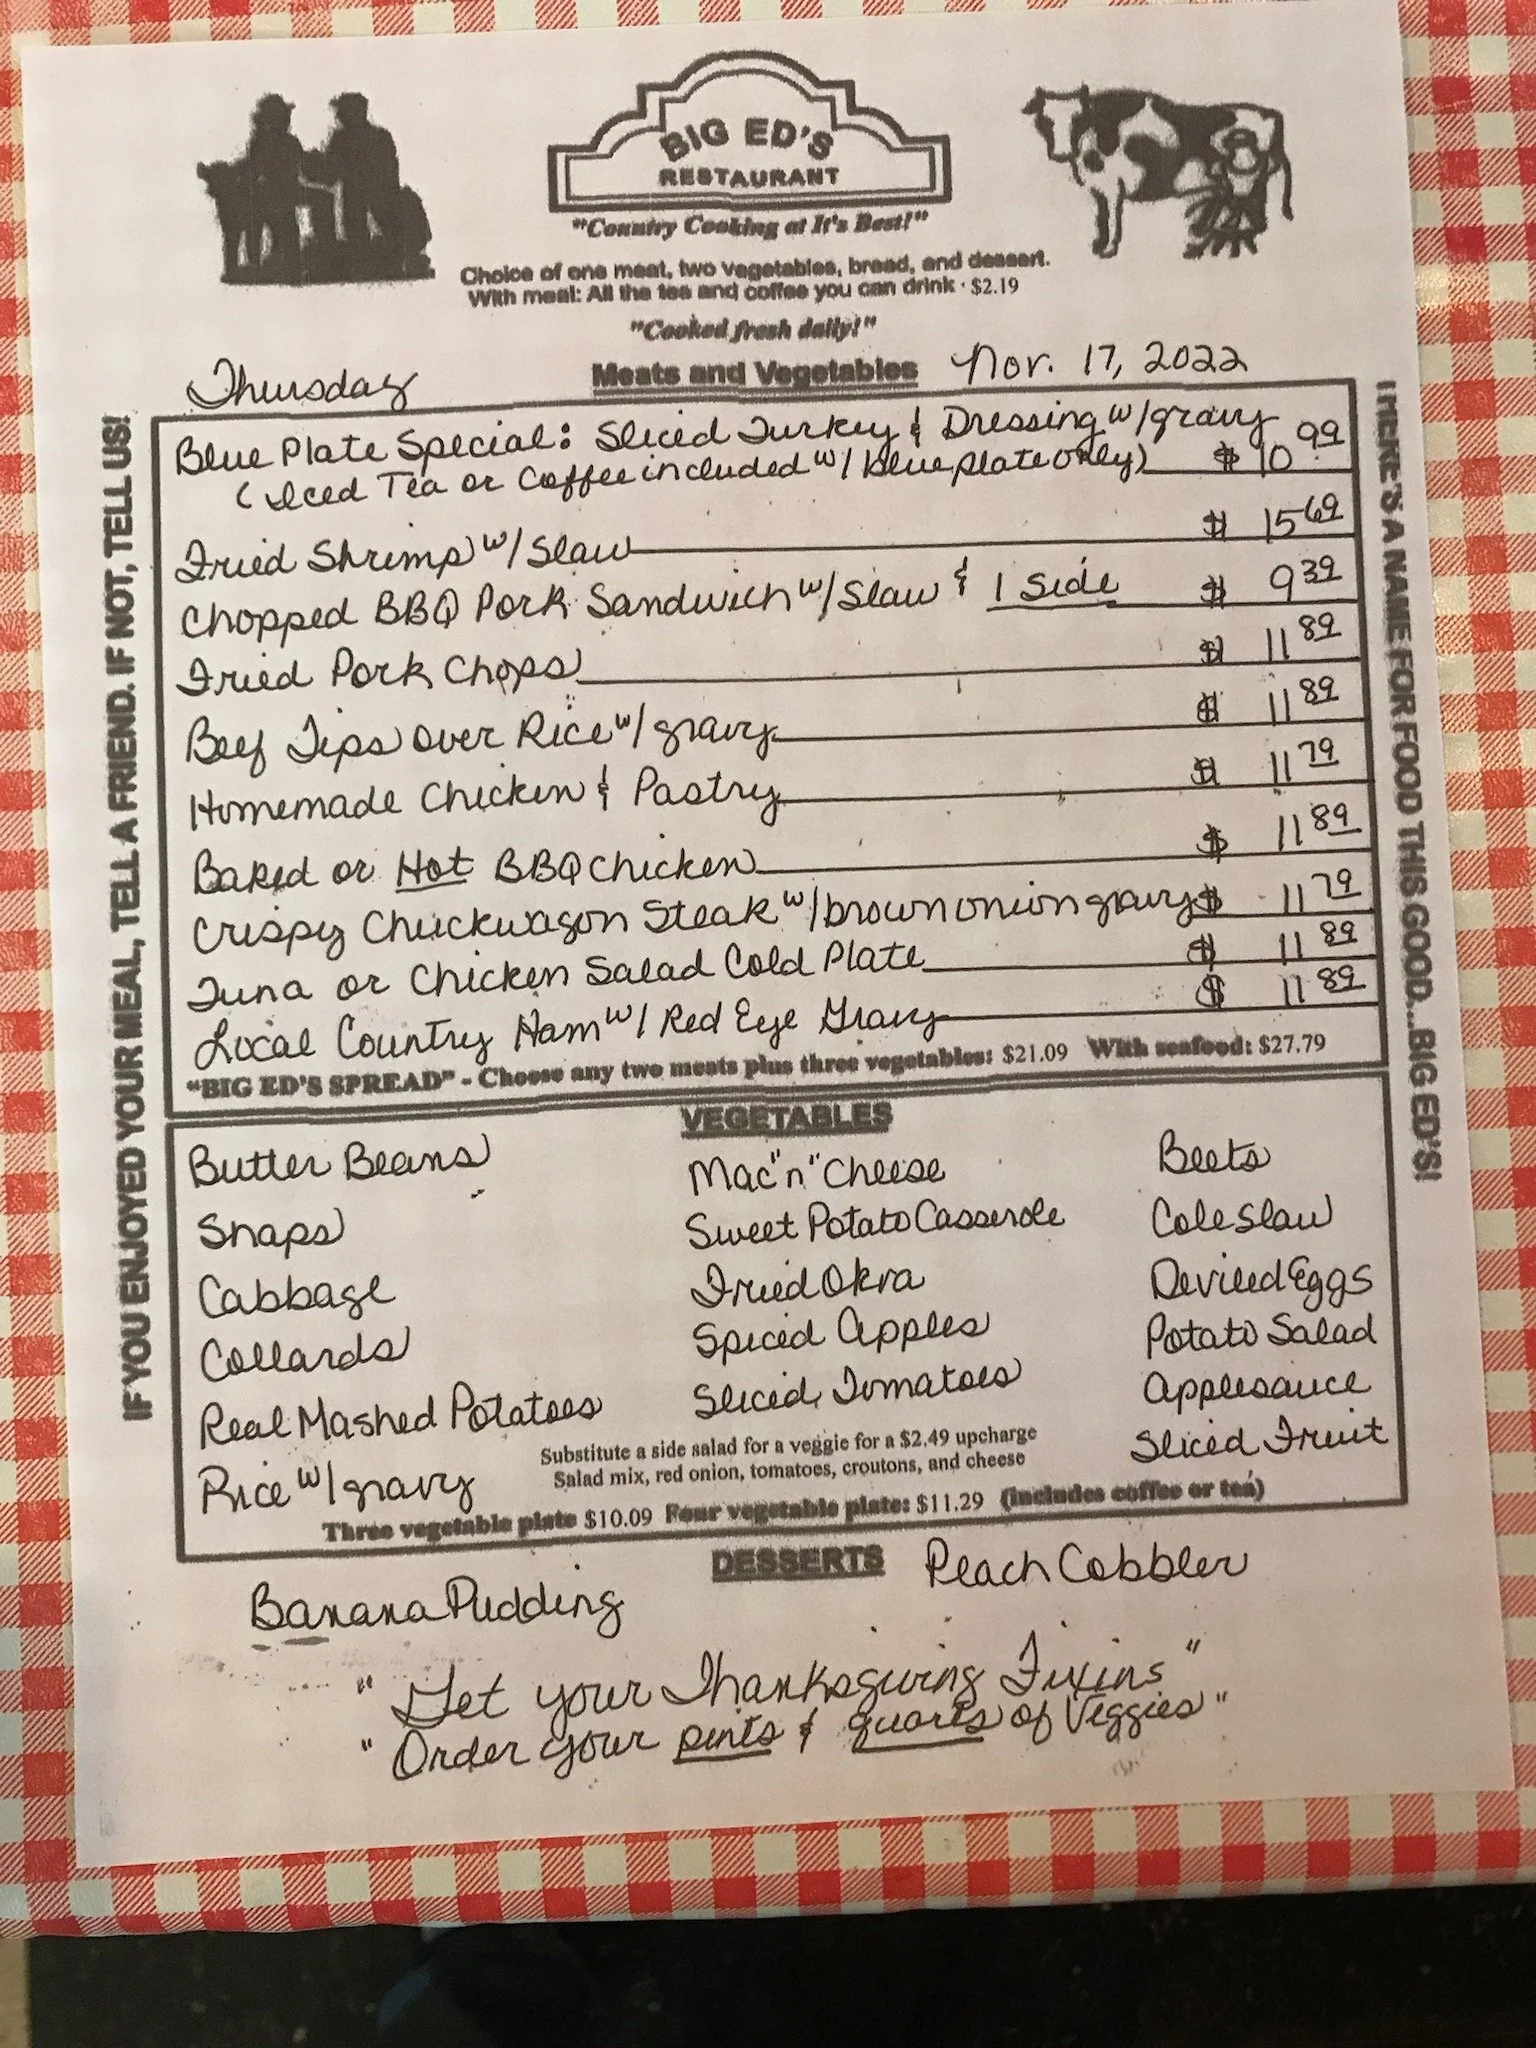 BIG ED'S
RESTAURANT
"Country Cooking at It's Best!"
Choice of one meat, two vegetables, bread, and dessert.
With meal: All the tea and coffee you can drink · $2.19
"Cooked fresh daily!"
Thursday Meats and Vegetables Nov. 17, 2022
IF YOU ENJOYED YOUR MEAL, TELL A FRIEND. IF NOT, TELL US!
Blue Plate Special: Sliced Turkey & Dressing w/gravy
(Iced Tea or Coffee included w/ blue plate only) $ 10.99
Fried Shrimp w/Slaw $ 15 69
Chopped BBQ Pork Sandwich w/Slaw & 1 Side $ 9 39
Fried Pork Chops $ 11 89
Beef Tips over Rice w/gravy $ 11 89
Homemade Chicken & Pastry $ 11 79
Baked or Hot BBQ Chicken $ 11 89
Crispy Chuckwagon Steak w/brown onion gravy $ 11 79
Tuna or Chicken Salad Cold Plate $ 11 89
Local Country Ham w/ Red Eye Gravy $ 11 89
"BIG ED'S SPREAD" - Choose any two meats plus three vegetables: $21.09 With seafood: $27.79
THERE'S A NAME FOR FOOD THIS GOOD...BIG ED'S!
VEGETABLES
Butter Beans Mac"n"Cheese Beets
Snaps Sweet Potato Casserole Cole Slaw
Cabbage Fried Okra Deviled Eggs
Collards Spiced Apples Potato Salad
Real Mashed Potatoes Sliced Tomatoes Applesauce
Rice w/gravy Sliced Fruit
Substitute a side salad for a veggie for a $2.49 upcharge
Salad mix, red onion, tomatoes, croutons, and cheese
Three vegetable plate $10.09 Four vegetable plate: $11.29 (includes coffee or tea)
DESSERTS
Banana Pudding Peach Cobbler
"Get your Thanksgiving Fixins"
"Order your pints & quarts of Veggies"